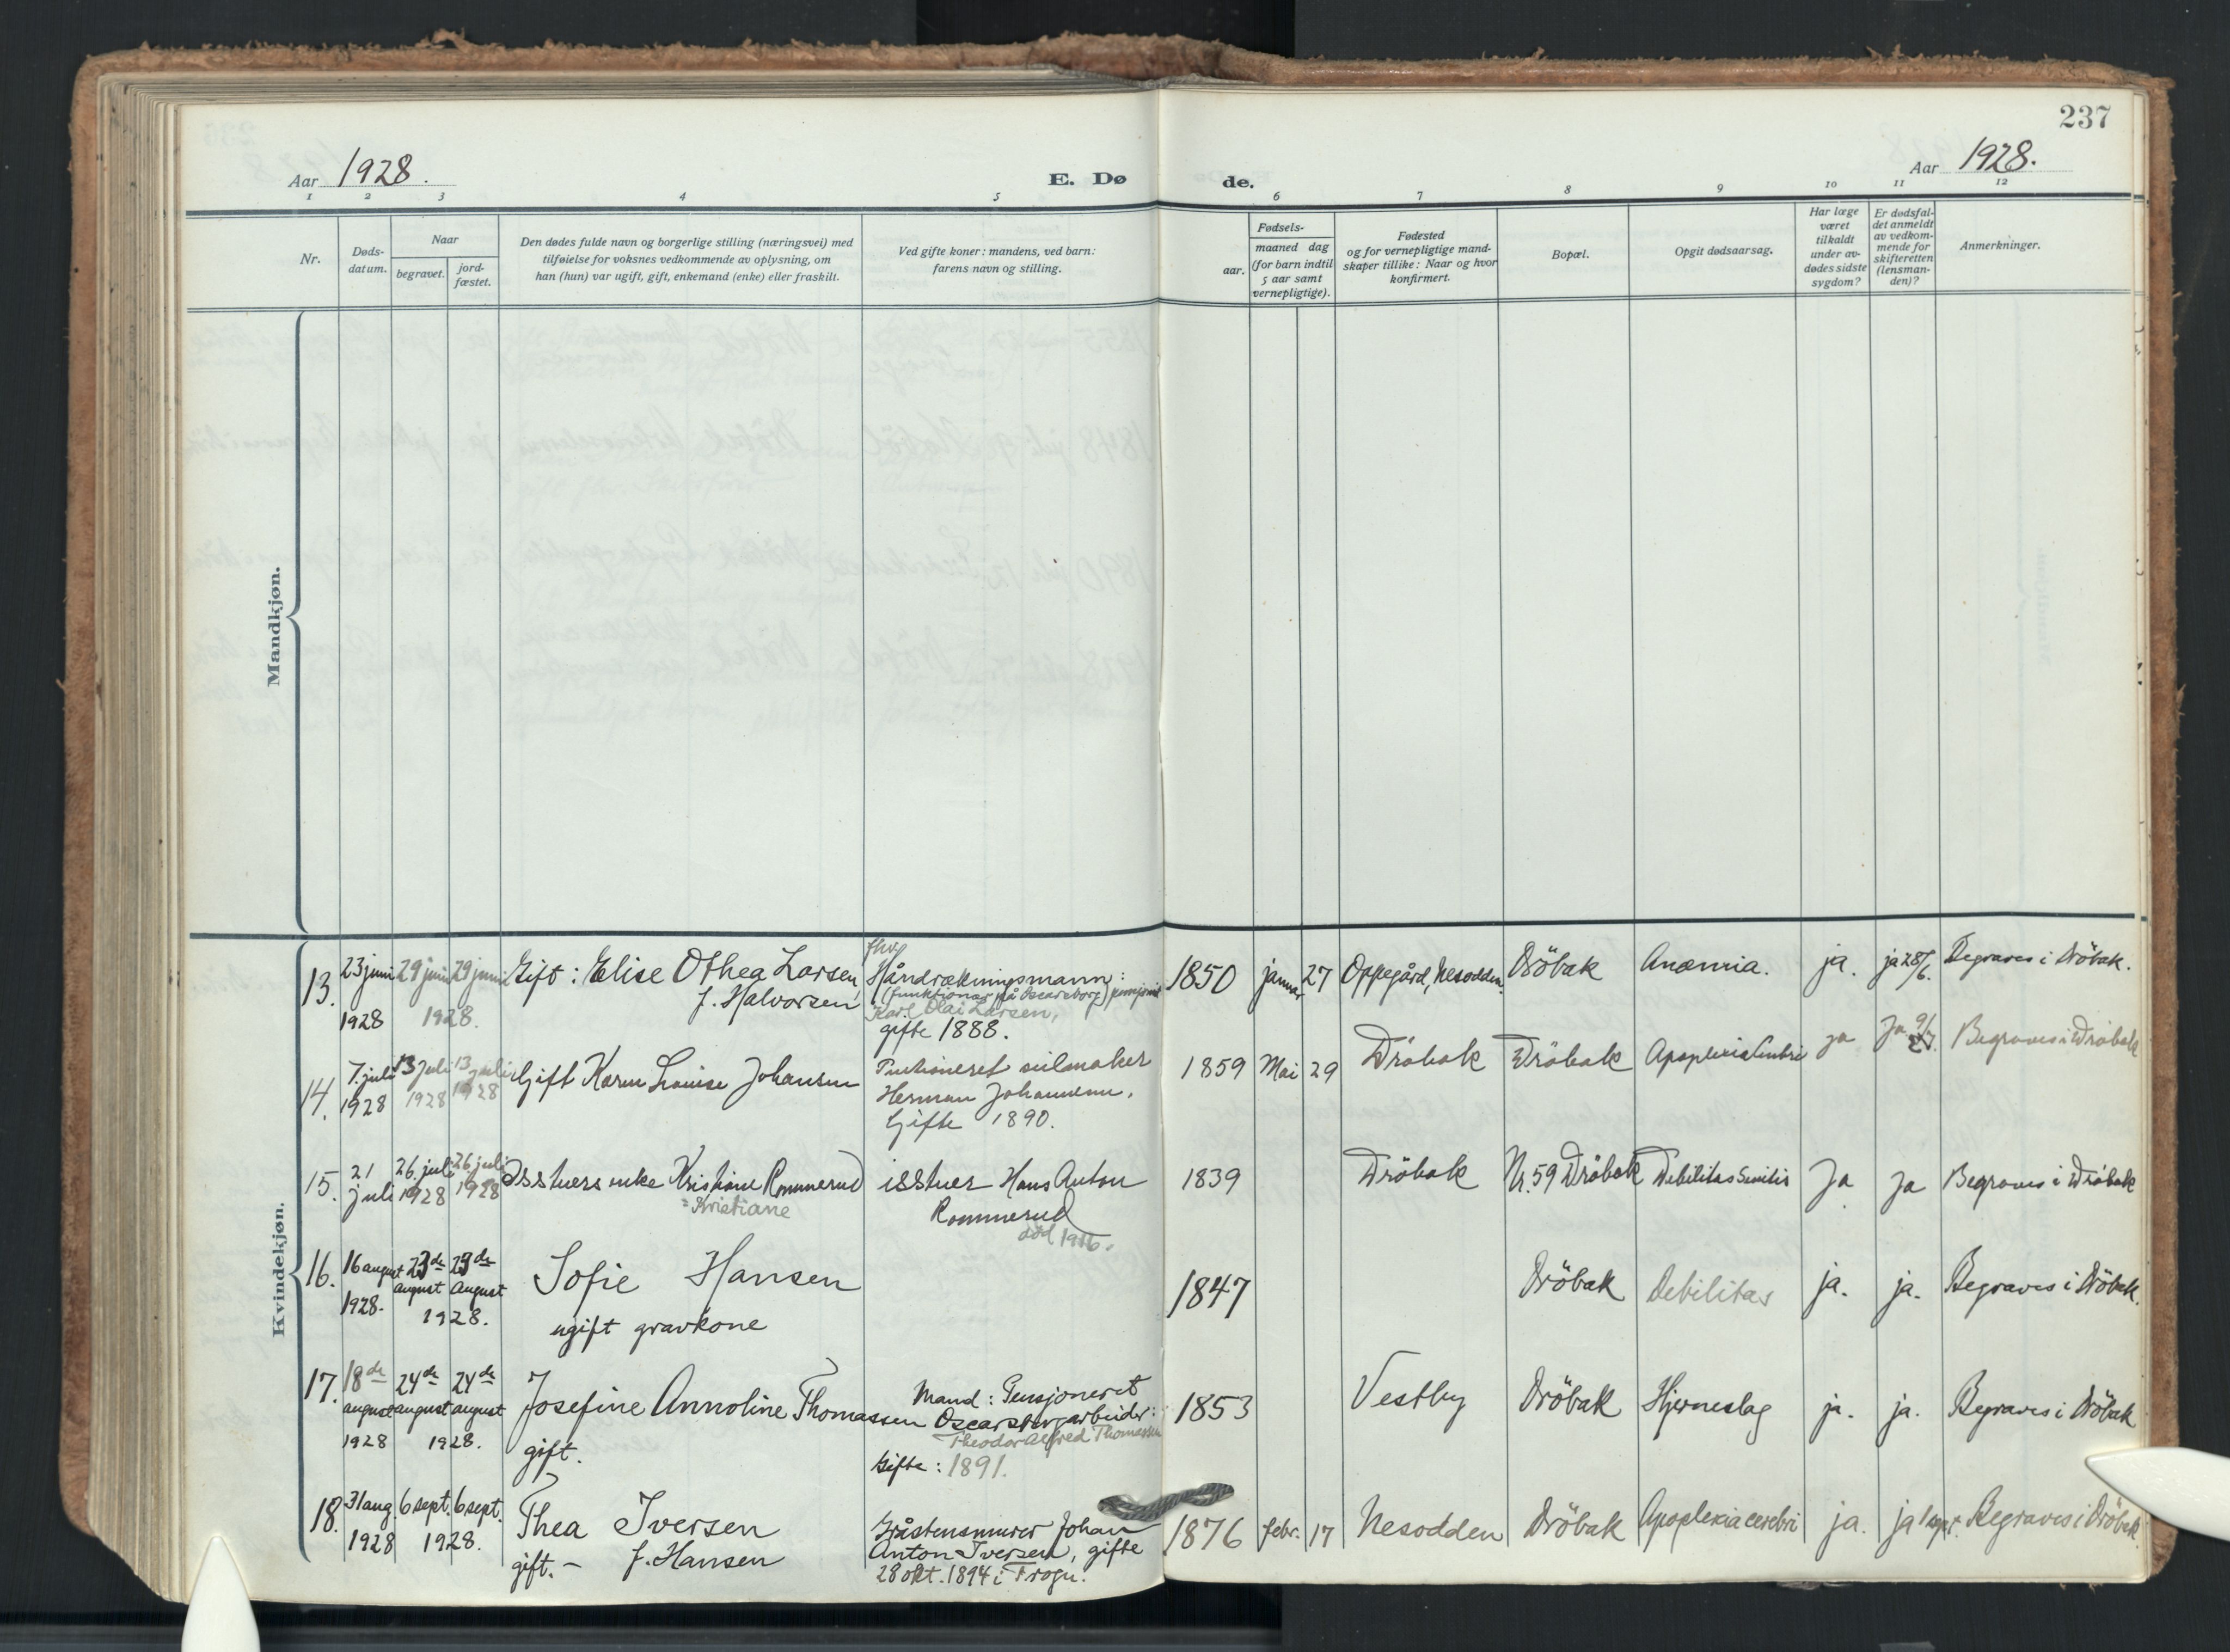 237
Aar 1928.
E. Døde.
Aar 1928.
1 2 3 4 5 6 7 8 9 10 11 12
Nr.
Døds-
datum.
Naar
begravet.
jord-
fæstet.
Den dødes fulde navn og borgerlige stilling (næringsvei) med
tilføielse for voksnes vedkommende av oplysning, om
han (hun) var ugift, gift, enkemand (enke) eller fraskilt.
Ved gifte koner: mandens, ved barn:
farens navn og stilling.
Fødsels-
aar.
maaned dag
(for barn indtil
5 aar samt
vernepligtige).
Fødested
og for vernepligtige mand-
skaper tillike: Naar og hvor
konfirmert.
Bopæl.
Opgit dødsaarsag.
Har læge
været
tilkaldt
under av-
dødes sidste
sygdom?
Er dødsfal-
det anmeldt
av vedkom-
mende for
skifteretten
(lensman-
den)?
Anmerkninger.
Mandkjøn.
Kvindekjøn.
13.
23 juni
1928
29 juni 29 juni
1928.
Gift: Elise Othea Larsen,
f. Halvorsen
fhv.
Håndrækningsmann:
(funktionær på Oscarsborg)
Karl Olai Larsen,
gifte 1888.
1850 januar 27
Oppegård, Nesodden.
Dröbak
Anæmia.
ja.
ja 28/6.
Begraves i Dröbak.
14.
7. juli
1928
13 juli
1928
13 juli
1928
Gift Karen Louise Johansen
Pentioneret seilmaker
Herman Johannesen.
Gifte 1890.
1859 Mai 29
Dröbak
Dröbak
Apoplexia Cerebri
ja
Ja 9/7.
Begraves i Dröbak
15.
21
juli
26. juli
1928
26 juli
1928
Isstuers enke Kristiane Rommerud
= Kristiane
isstuer Hans Anton
Rommerud
död 1916.
1839
Dröbak
Nr. 59 Dröbak
Debilitas Senilis
Ja
Ja
Begraves i Dröbak
16.
16 august
1928.
23de 23de
august august
1928.
Sofie Hansen
ugift gravkone
1847
Dröbak
Debilitas
ja.
ja.
Begraves i Dröbak.
17.
18de
august
1928
24de 24de
august august
1928.
Josefine Annoline Thomassen
gift.
Mand: Pensjoneret
Oscarsborgarbeider:
Theodor Alfred Thomassen
Gifte: 1891.
1853
Vestby
Dröbak
Hjerneslag
ja.
ja.
Begraves i Dröbak
18.
31 aug.
1928
6 sept. 6 sept.
1928.
Thea Iversen
gift. – f. Hansen
Gråstensmurer Johan
Anton Iversen, gifte
28 okt. 1894 i Frogn.
1876 febr. 17
Nesodden
Dröbak
Apoplexia cerebri
ja.
ja 1 sept.
Begraves i Dröbak.